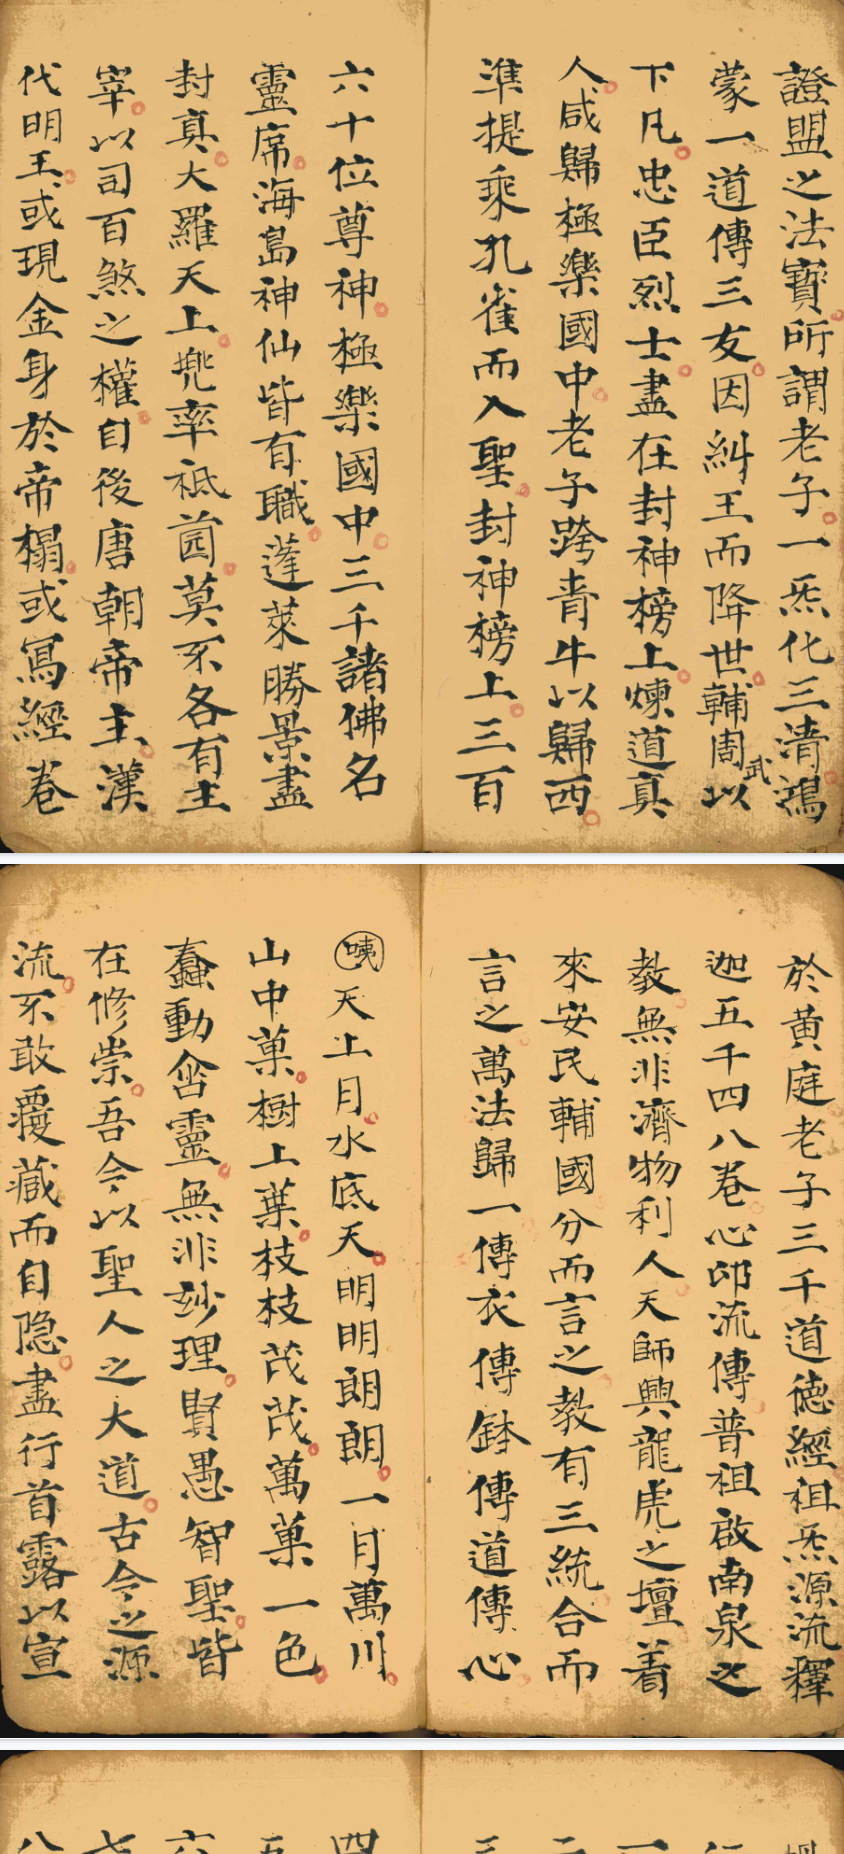 證盟之法寶所謂老子一炁化三清鴻
蒙一道傳三友因糾王而降世輔周武以
下凡忠臣烈士盡在封神榜上煉道真
人咸歸極樂國中老子跨青牛以歸西
準提乘孔雀而入聖封神榜上三百
六十位尊神極樂國中三千諸佛名
靈席海島神仙皆有職蓬萊勝景盡
封真大羅天上兠率祗园莫不各有主
宰以司百煞之權自後唐朝帝主漢
代明王或現金身於帝榻或寫經卷
於黄庭老子三千道德經祖炁源流釋
迦五千四八卷心印流傳普祖啟南泉之
教無非濟物利人天師興龍虎之壇着
來安民輔國分而言之教有三統合而
言之萬法歸一傳衣傳鉢傳道傳心
咦天上月水底天明明朗朗一月萬川
山中菓樹上葉枝枝茂茂萬菓一色
蠢動含靈無非玅理賢愚智聖皆
在修崇吾今以聖人之大道古今之源
流不敢覆藏而自隐盡行首露以宣
一
二
三
四
五
六
七
八